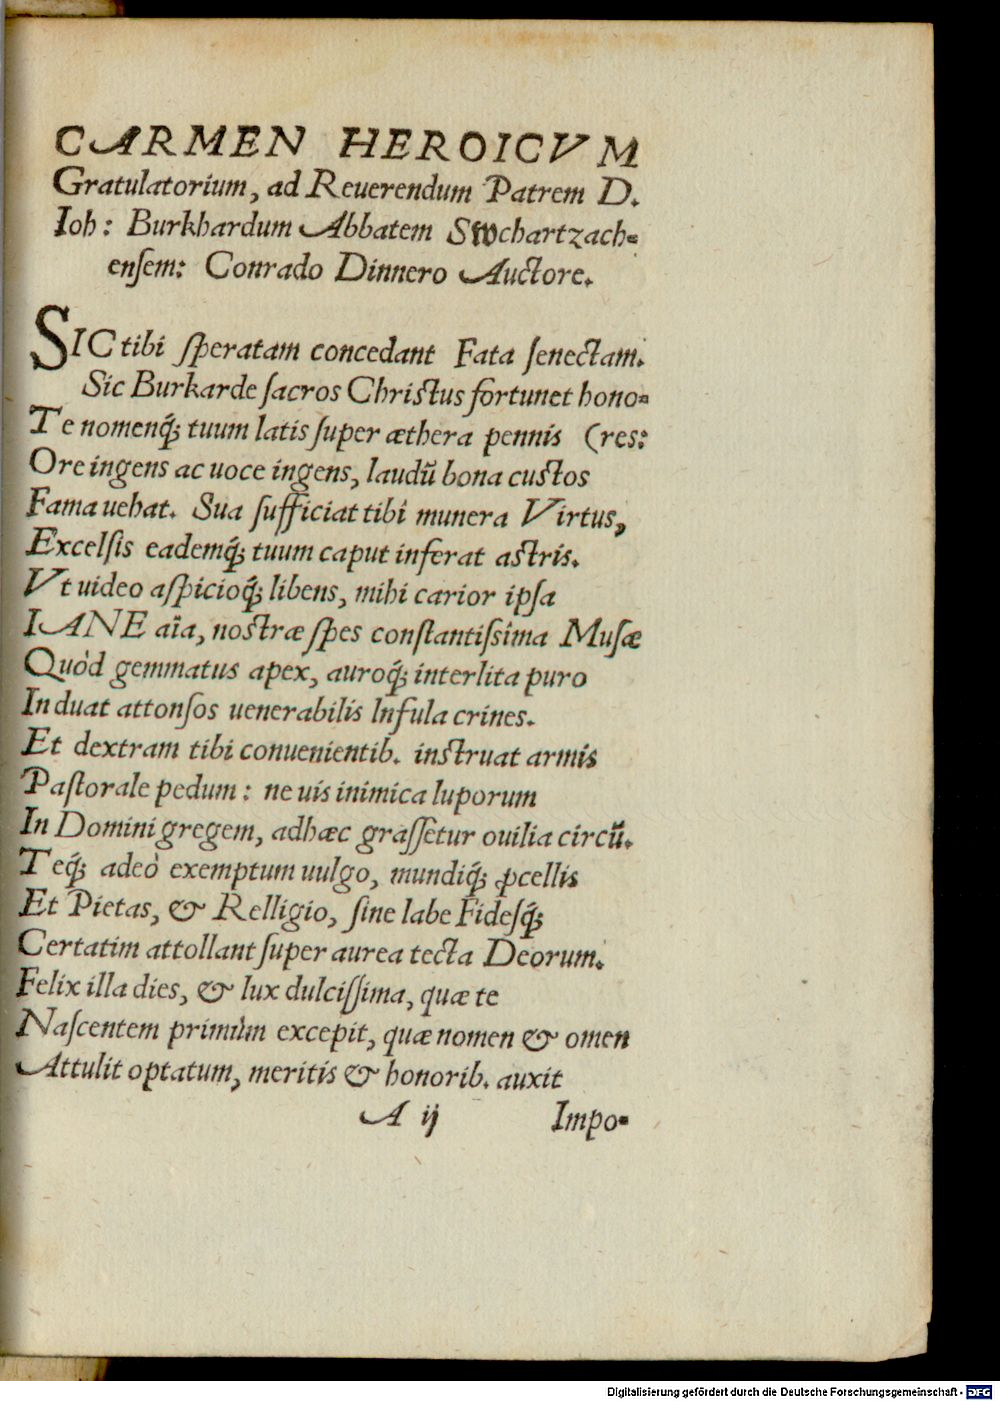 CARMEN HEROICVM
Gratulatorium, ad Reuerendum Patrem D.
Ioh: Burkhardum Abbatem Swchartzach-
ensem: Conrado Dinnero Auctore.
SIC tibi speratam concedant Fata senectam.
Sic Burkarde sacros Christus fortunet hono-
Te nomenq́; tuum latis super æthera pennis (res:
Ore ingens ac uoce ingens, laudū bona custos
Fama uehat. Sua sufficiat tibi munera Virtus,
Excelsis eademq́; tuum caput inferat astris.
Vt uideo aspicioq́; libens, mihi carior ipsa
IANE aīa, nostræ spes constantissima Musæ
Quòd gemmatus apex, auroq́; interlita puro
Induat attonsos uenerabilis Infula crines.
Et dextram tibi conuenientib. instruat armis
Pastorale pedum: ne uis inimica luporum
In Domini gregem, adhæc grassetur ouilia circū.
Teq́; adeò exemptum uulgo, mundiq́; ꝓcellis
Et Pietas, & Relligio, sine labe Fidesq́;
Certatim attollant super aurea tecta Deorum.
Felix illa dies, & lux dulcissima, quæ te
Nascentem primùm excepit, quæ nomen & omen
Attulit optatum, meritis & honorib. auxit
A ij Impo-
Digitalisierung gefördert durch die Deutsche Forschungsgemeinschaft - DFG